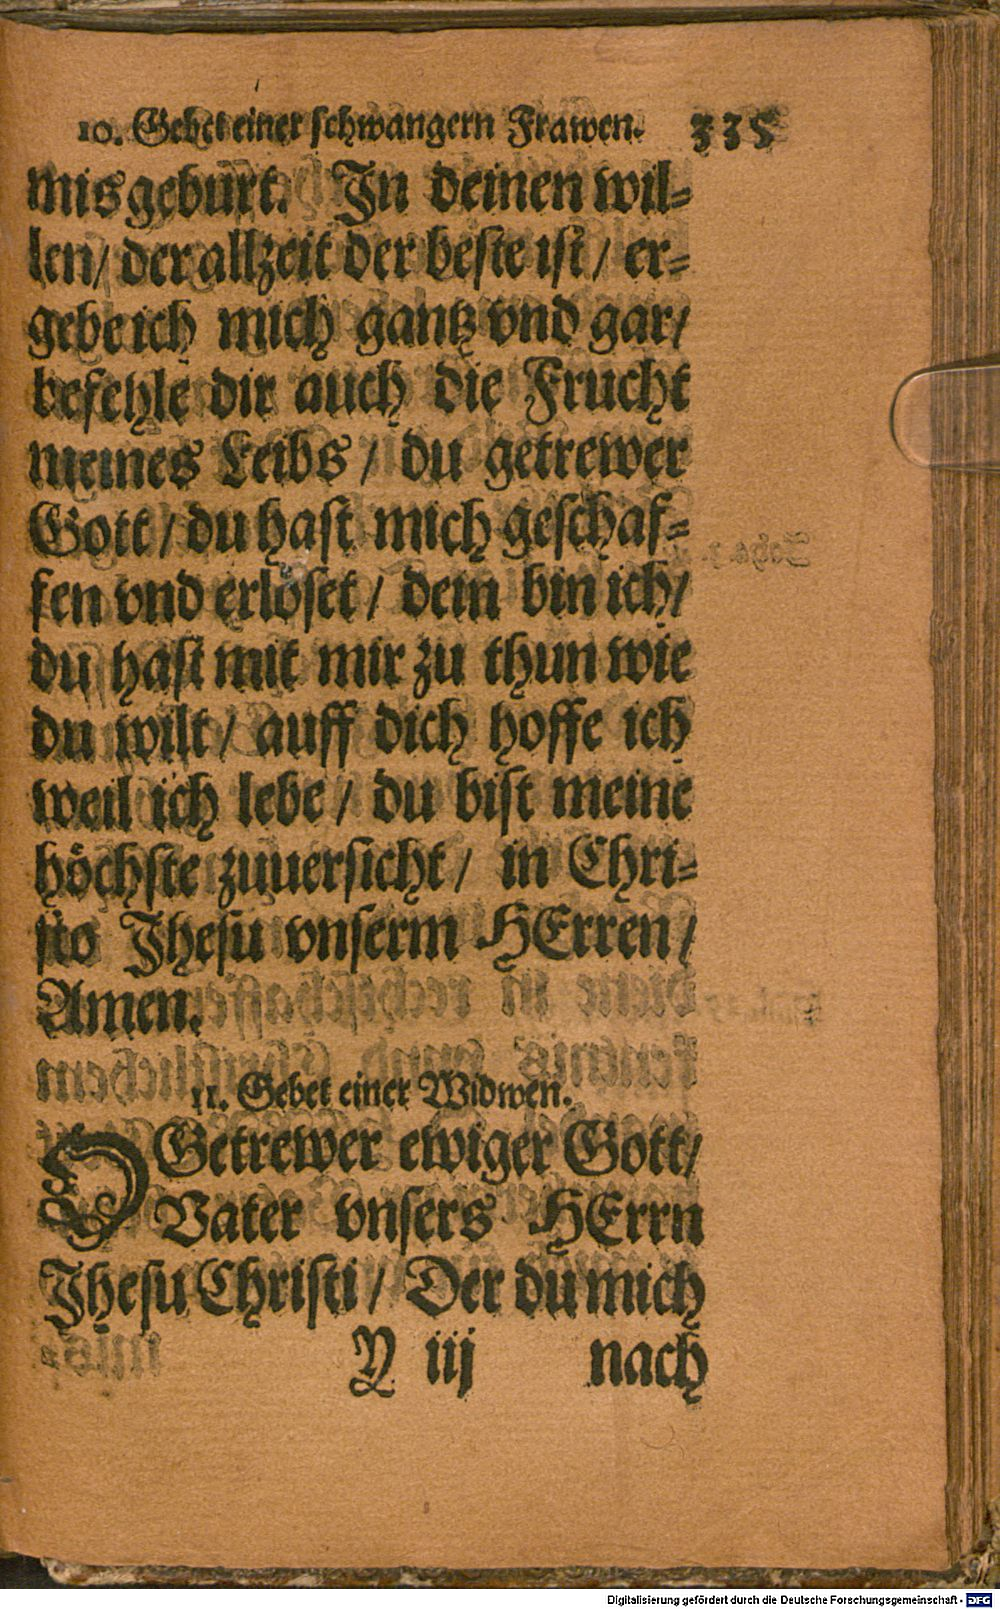 10. Gebet einer schwangern Frawen. 335
misgeburt. In deinen wil-
len/ der allzeit der beste ist/ er-
gebe ich mich gantz vnd gar/
befehle dir auch die Frucht
meines Leibs/ du getrewer
Gott/ du hast mich geschaf-
fen vnd erlöset/ dein bin ich/
du hast mit mir zu thun wie
du wilt/ auff dich hoffe ich
weil ich lebe/ du bist meine
höchste zuuersicht/ in Chri-
sto Jhesu vnserm HErren/
Amen.
11. Gebet einer Widwen.
O Getrewer ewiger Gott/
Vater vnsers HErrn
Jhesu Christi/ Der du mich
Y iij nach
Digitalisierung gefördert durch die Deutsche Forschungsgemeinschaft - DFG